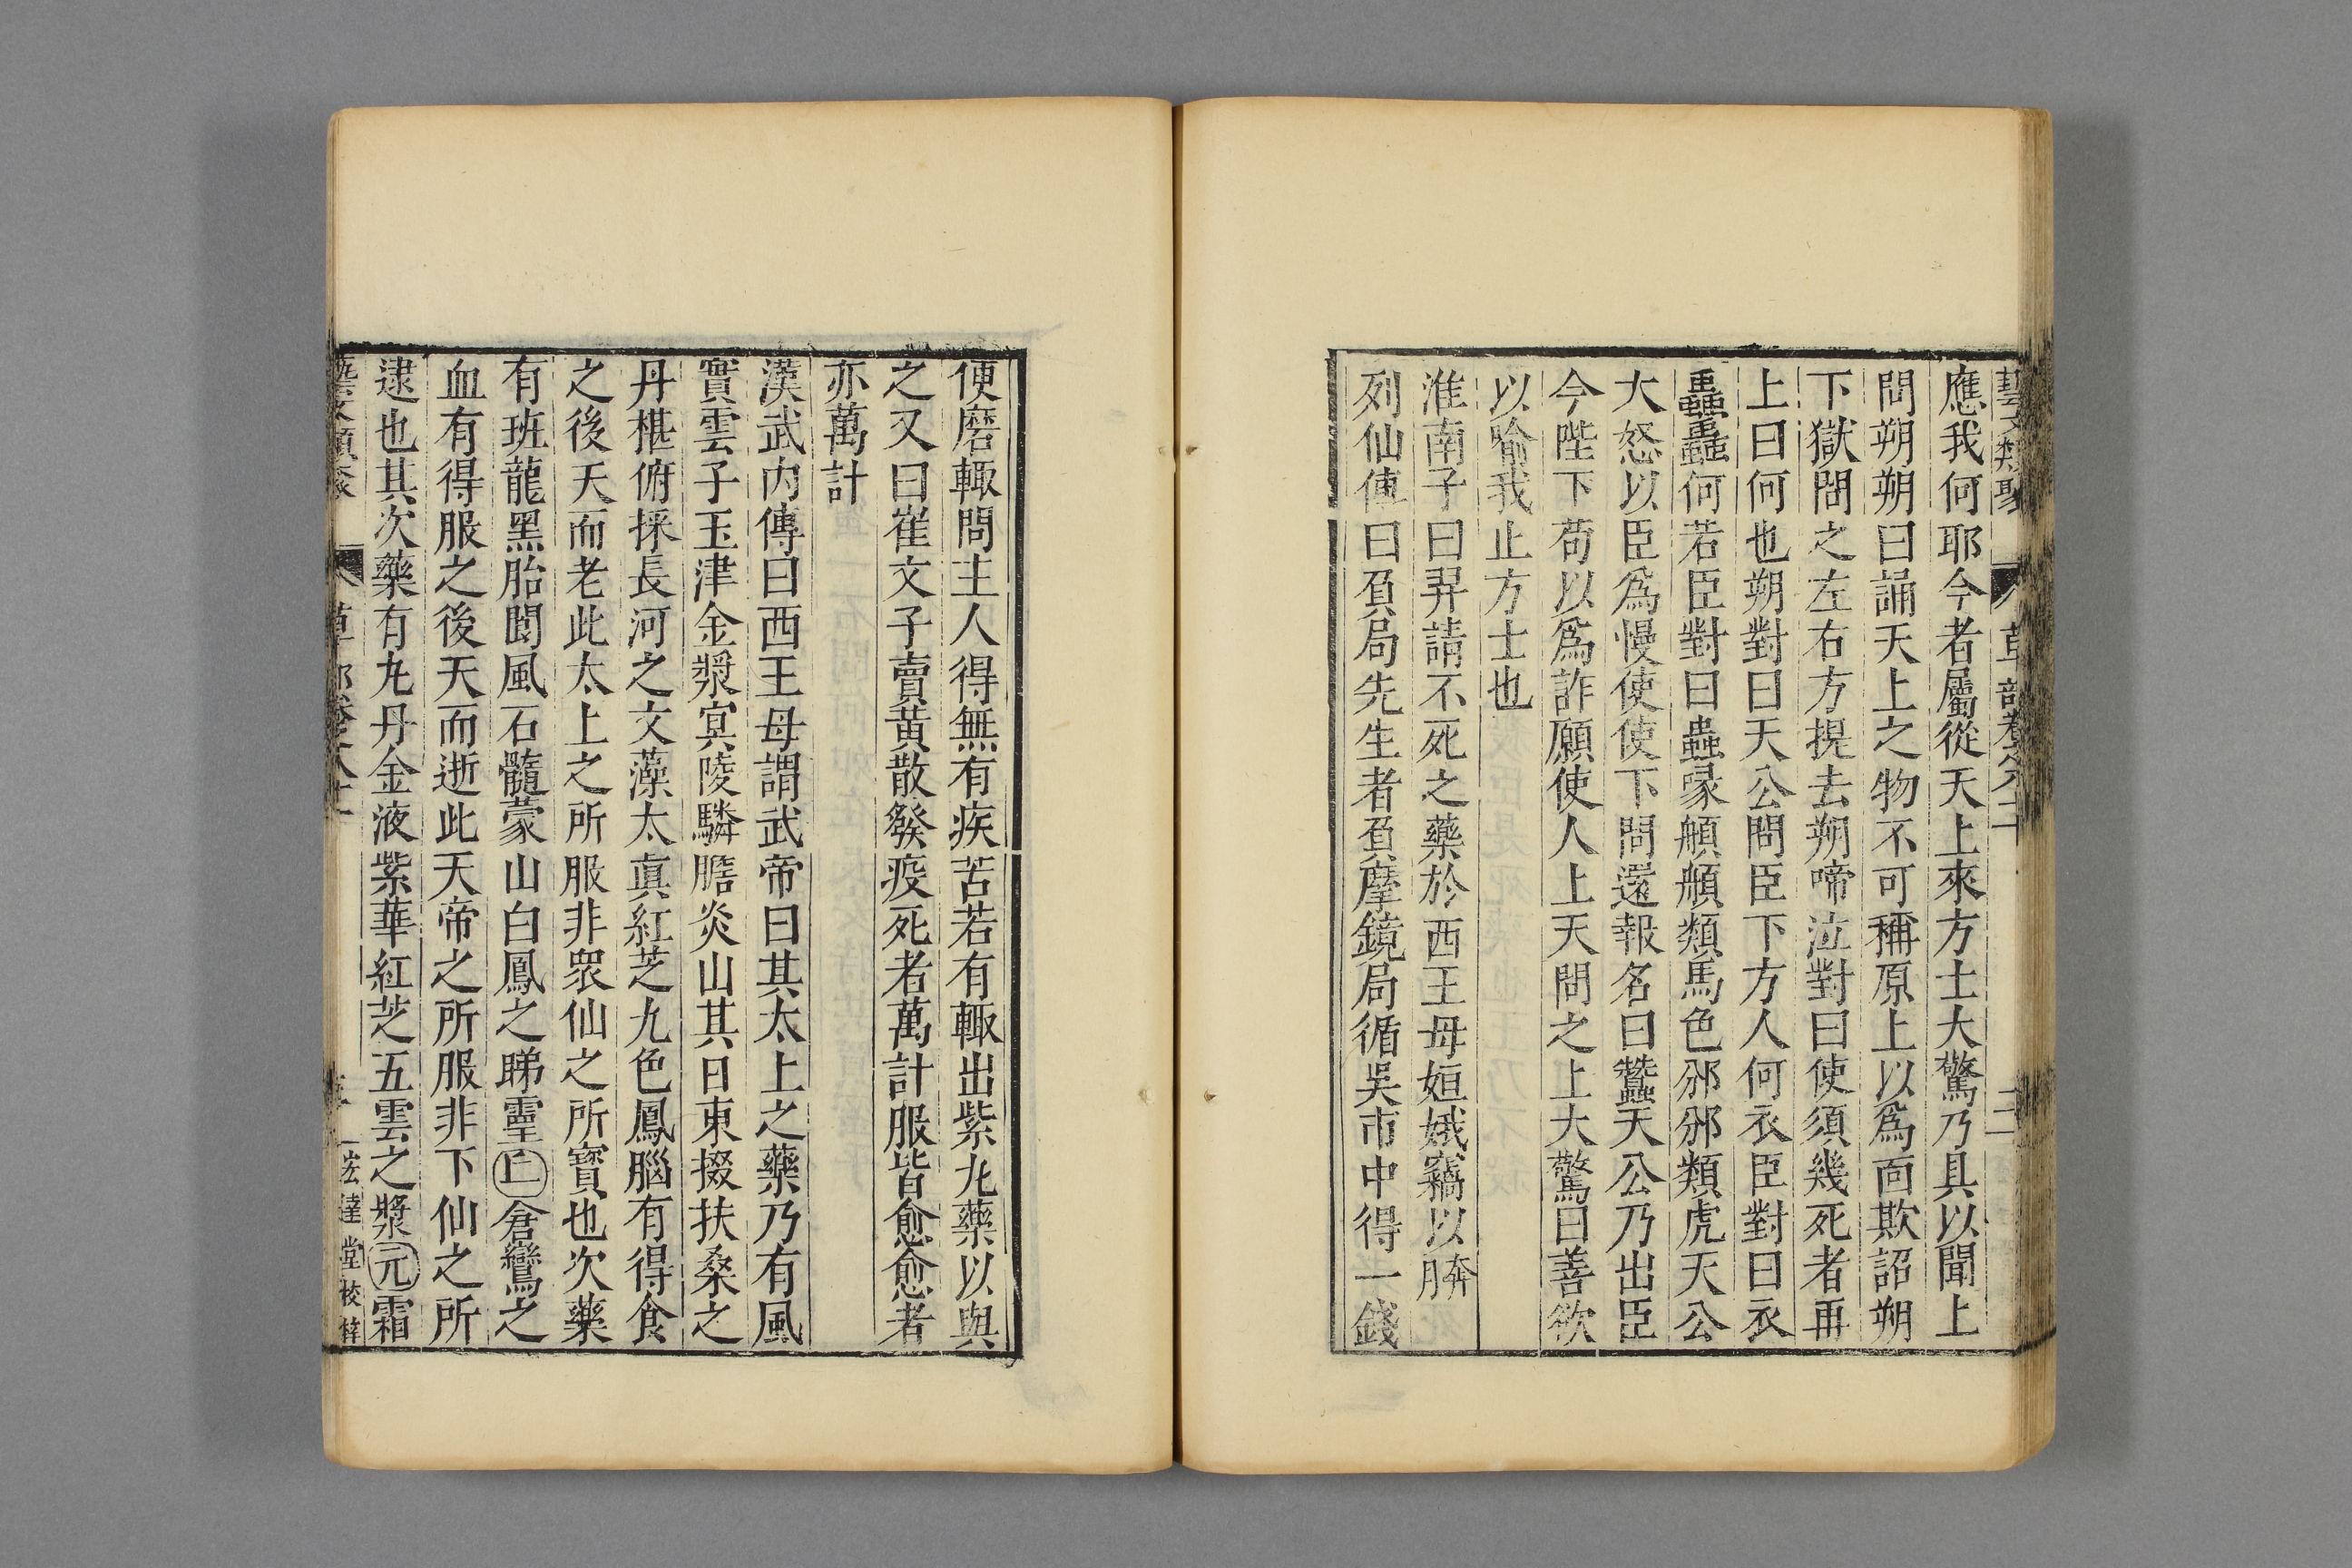 藝文類聚 草部卷八十一 二
應我何耶今者屬從天上來方士大驚乃具以聞上
問朔朔曰誦天上之物不可稱原上以爲面欺詔朔
下獄問之左右方提去朔啼泣對曰使須幾死者再
上曰何也朔對曰天公問臣下方人何衣臣對曰衣
蟲蟲何若臣對曰蟲喙䫇䫇類馬色邠邠類虎天公
大怒以臣爲慢使使下問還報名曰蠶天公乃出臣
今陛下苟以爲詐願使人上天問之上大驚曰善欲
以喻我止方士也
淮南子曰羿請不死之藥於西王母姮娥竊以
列仙傳曰負局先生者負摩鏡局循吳市中得一錢
便磨輙問主人得無有疾苦若有輙出紫丸藥以與
之又曰崔文子賣黃散發疫死者萬計服皆愈愈者
亦萬計
漢武内傳曰西王母謂武帝曰其太上之藥乃有風
實雲子玉津金漿㝠陵驎膽炎山其日東掇扶桑之
丹椹俯採長河之文藻太眞紅芝九色鳳腦有得食
之後天而老此太上之所服非衆仙之所寳也次藥
有班龍黑胎閬風石髓蒙山白鳳之睇靈丘倉鸞之
血有得服之後天而逝此天帝之所服非下仙之所
逮也其次藥有九丹金液紫華紅芝五雲之漿元霜
藝文類聚 草部卷八十一 三 宏達堂校梓